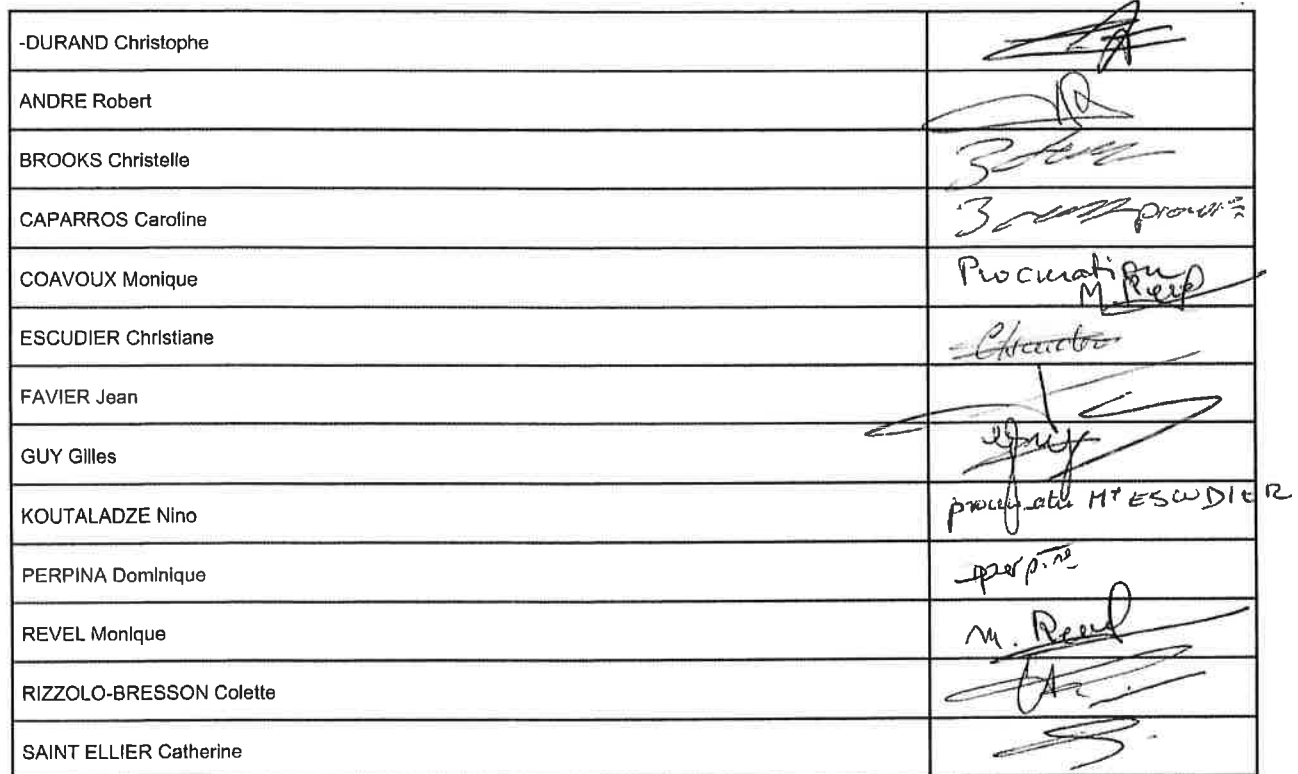 -DURAND Christophe
ANDRE Robert
BROOKS Christelle
CAPARROS Caroline
COAVOUX Monique
Procuration
M. Revel
ESCUDIER Christiane
FAVIER Jean
GUY Gilles
KOUTALADZE Nino
ESCUDIER
PERPINA Dominique
REVEL Monique
M. Revel
RIZZOLO-BRESSON Colette
SAINT ELLIER Catherine